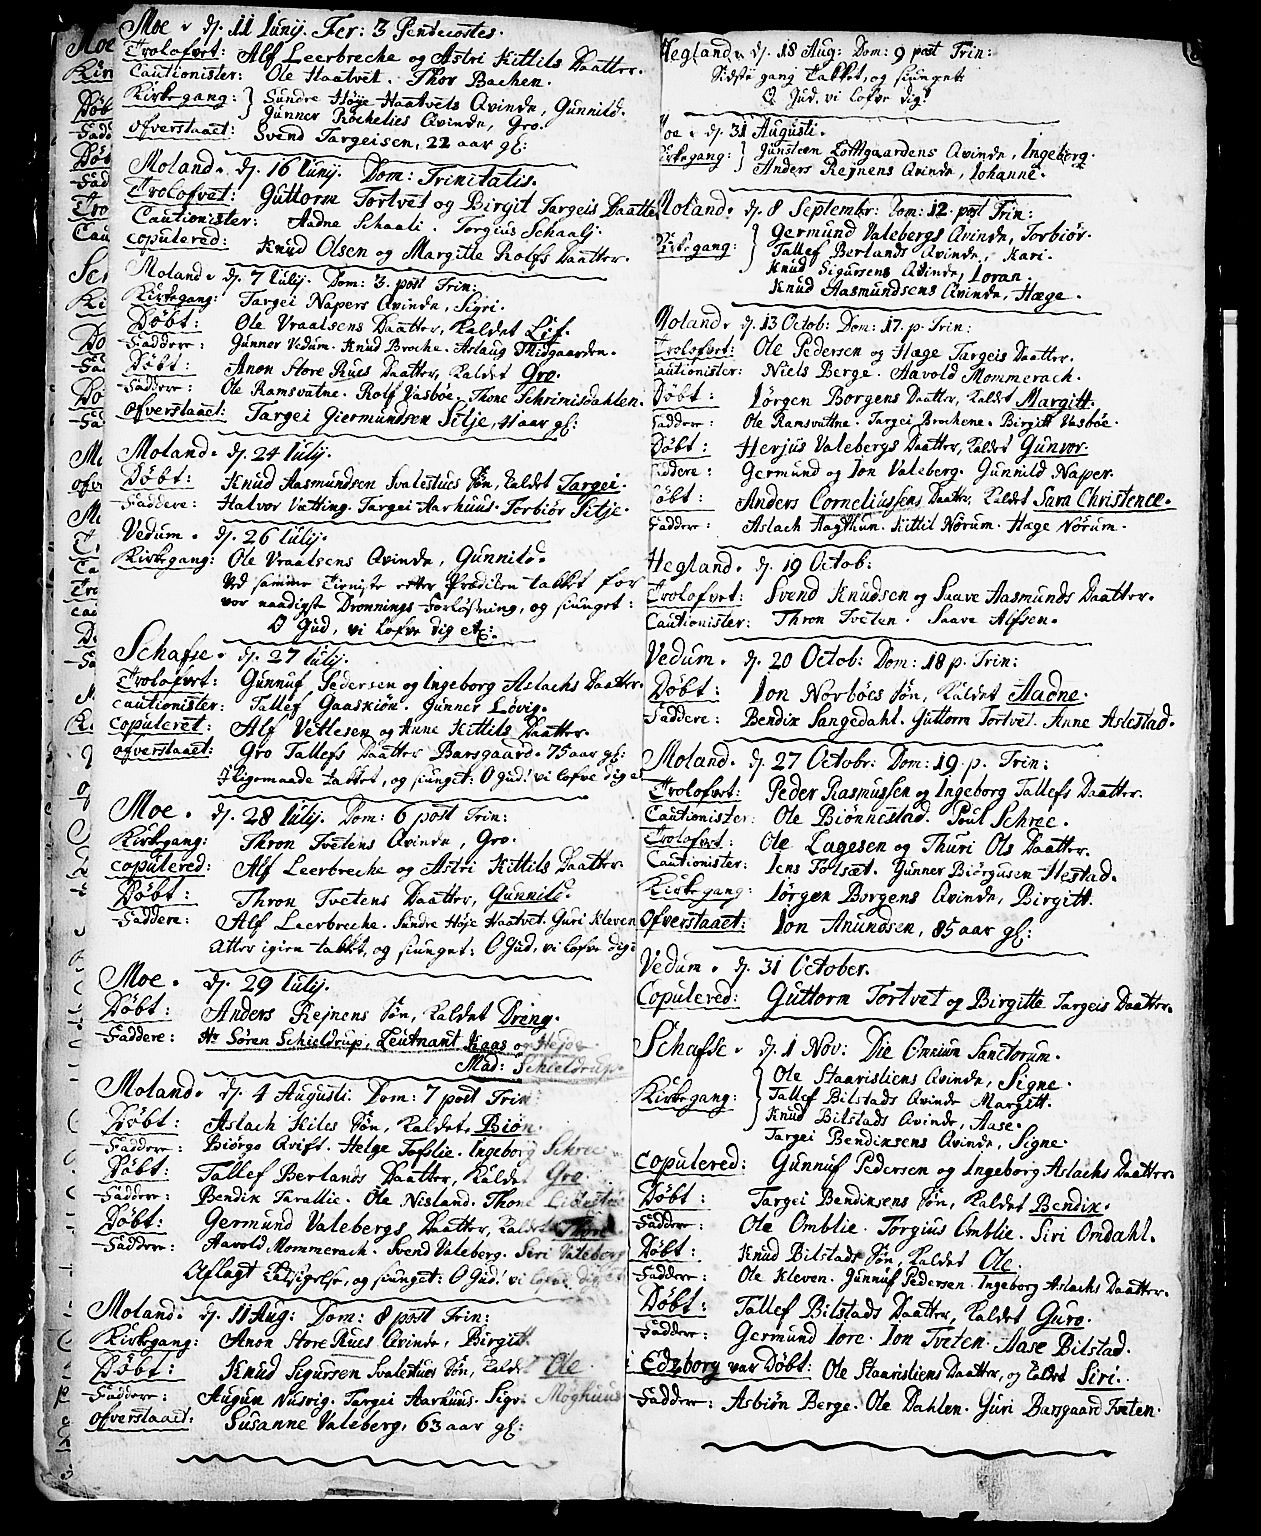 Moe. d. 11 Iunij. Fer: 3 Pentecostes.
Trolofvet: Alf Leerbreche og Astri Kittils Daatter.
Cautionister: Ole Haatvet. Thor Bachen.
Kirkegang: } Sundre Høje Haatvets Qvinde, Gunnild.
Gunner Rochelies Qvinde, Gro.
ofverstaaet: Svend Targeisen, 22 aar gl:
Moland. d. 16 Iunij. Dom: Trinitatis.
Trolofvet: Guttorm Tortvet og Birgit Targeis Daatter
Cautionister: Aadne Schaali. Torgius Schaali.
copulered: Knud Olsen og Margitte Rolfs Daatter.
Moland. d. 7 Iulij. Dom: 3. post Trin:
Kirkegang: Targei Napers Qvinde, Sigri.
Døbt: Ole Vraalsens Daatter, kaldet Lif.
Faddere: Gunner Vedum. Knud Broche. Aslaug Midgaarden.
Døbt: Anon Store Rues Daatter, kaldet Gro.
Faddere: Ole Ramsvatne. Rolf Vasbøe. Thone Schrimisdahlen.
ofverstaaet: Targei Giermundsen Sitje, 41 aar gl:
Moland. d. 24 Iulij.
Døbt: Knud Aasmundsen Svalestues Søn, kaldet Targei.
Faddere: Halvor Vatting. Targei Aarhuus. Torbiør Sitje.
Vedum. d. 26 Iulij.
Kirkegang: Ole Vraalsens Qvinde, Gunnild.
Ved samme Tieniste efter Prædiken takket for
vor naadigste Dronnings Forløsning, og siunget:
O Gud, vi lofve dig etc:
Schafse. d. 27 Iulij.
Trolofvet: Gunnuf Pedersen og Ingeborg Aslachs Daatter.
cautionister: Tallef Gaaskiøn. Gunner Løvig.
copuleret: Alf Vetlesen og Anne Kittils Daatter.
ofverstaaet: Gro Tallefs Daatter Barsgaard. 75 aar gl:
Ligemaade takket, og siunget: O Gud! vi lofve dig
Moe. d. 28 Iulij. Dom: 6 post Trin:
Kirkegang: Thron Tvetens Qvinde, Gro.
copulered: Alf Leerbreche og Astri Kittils Daatter.
Døbt: Thron Tvetens Daatter, Gunnild.
Faddere: Alf Leerbreche. Sundre Høje Haatvet. Guri Kleven
Atter igien takket, og siunget: O Gud, vi lofve dig:
Moe. d. 29 Iulij.
Døbt: Anders Rejnens Søn, kaldet Dreng.
Faddere: Hr Søren Schieldrup, Leutnant Kaas og Hejde
Mad: Schieldrup.
Moland. d. 4 Augusti. Dom: 7 post Trin:
Døbt: Aslach Kiles Søn, kaldet Biøn.
Faddere: Biørgo Qvift. Helge Tofslie. Ingeborg Schree
Døbt: Tallef Berlands Daatter, kaldet Gro.
Faddere: Bendix Tarallie. Ole Nisland. Thone
Døbt: Germund Valebergs Daatter, kaldet Thore
Faddere: Aavold Mommerach. Svend Valeberg. Siri Valeberg
Aflagt Taksigelse, og siunget: O Gud! vi lofve dig
Moland. d. 11 Aug: Dom: 8 post Trin:
Kirkegang: Anon Store Rues Qvinde, Birgitt.
Døbt: Knud Sigursen Svalestues Søn, kaldet Ole.
Faddere: Augun Nusvig. Targei Aarhuus. Sigri Moghuus
ofverstaaet: Susanne Valeberg, 63 aar gl:
Hegland. d. 18 Aug: Dom: 9 post Trin:
Sidste gang takket, og siunget:
O Gud, vi lofve dig!
Moe. d. 31 Augusti.
Kirkegang: } Gunsteen Lofttgaardens Qvinde, Ingeborg.
Anders Rejnens Qvinde, Iohanne.
Moland. d. 8 Septembr: Dom: 12. post Trin:
Kirkegang: } Germund Valebergs Qvinde, Torbiør.
Tallef Berlands Qvinde, Kari.
Knud Sigursens Qvinde, Ioran.
Knud Aasmundsens Qvinde, Hæge.
Moland. d. 13 Octob: Dom: 17. p. Trin:
Trolofvet: Ole Pedersen og Hæge Targeis Daatter.
Cautionister: Niels Berge. Aavold Mommerach.
Døbt: Iørgen Borgens Daatter, kaldet Margitt.
Faddere: Ole Ramsvattne. Targei Brochene. Birgitt Vasbøe.
Døbt: Herjus Valebergs Daatter, kaldet Gunvor.
Faddere: Germund og Ion Valeberg. Gunnild Naper.
Døbt: Anders Corneliussens Daatter, kaldet Sara Christence.
Faddere: Aslach Aagthun. Kittil Nørum. Hæge Nørum.
Hegland. d. 19 Octob:
Trolofvet: Svend Knudsen og Saave Aasmunds Daatter.
Cautionister: Thron Tveten. Saave Alfsen.
Vedum. d. 20 Octob: Dom: 18 p. Trin:
Døbt: Ion Norbøes Søn, kaldet Aadne.
Faddere: Bendix Langedahl. Guttorm Tortvet. Anne Aslestad.
Moland. d. 27 Octobr: Dom: 19 p. Trin:
Trolofvet: Peder Rasmussen og Ingeborg Tallefs Daatter.
Cautionister: Ole Biønnestad. Poul Schree.
Trolofvet: Ole Lagesen og Thuri Ols Daatter.
Cautionister: Iens Foltsæt. Gunner Biørgusen Hestad.
Kirkegang: Iørgen Borgens Qvinde, Birgitt.
Ofverstaaet: Ion Anundsen, 85 aar gl:
Vedum. d. 31 October.
Copulered: Guttorm Tortvet og Birgitte Targeis Daatter.
Schafse. d. 1 Nov: Die Omnium Sanctorum.
Kirkegang: { Ole Staaristiens Qvinde, Signe.
Tallef Bilstads Qvinde Margitt.
Knud Bilstads Qvinde, Aase.
Targei Bendiksens Qvinde, Signe.
copulered: Gunnuf Pedersen og Ingeborg Aslachs Daatter.
Døbt: Targei Bendiksens Søn, kaldet Bendix.
Faddere: Ole Omblie. Torgius Omblie. Siri Omdahl.
Døbt: Knud Bilstads Søn, kaldet Ole.
Faddere: Ole Kleven. Gunnuf Pedersen. Ingeborg Aslachs Daatter.
Døbt: Tallef Bilstads Daatter, kaldet Guro.
Faddere: Germund Iore. Ion Tveten. Aase Bilstad.
i Edzborg var Døbt: Ole Staaristiens Daatter, og kaldet Siri.
Faddere: Asbiøn Berge. Ole Dahlen. Guri Barsgaard Tveten.